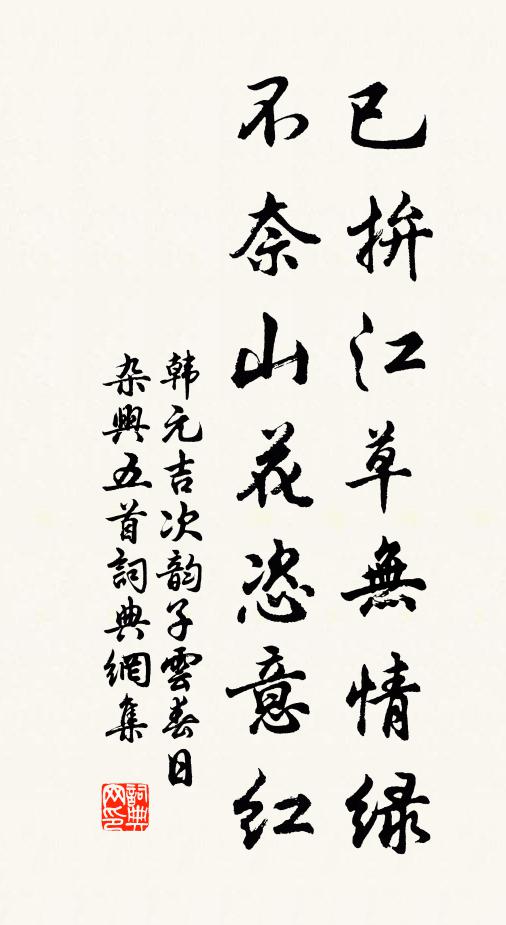 已拚江草無情緑
不奈山花恣意红
韩元吉次韵子雲春日
杂興五首詞典網集
詞典
网印